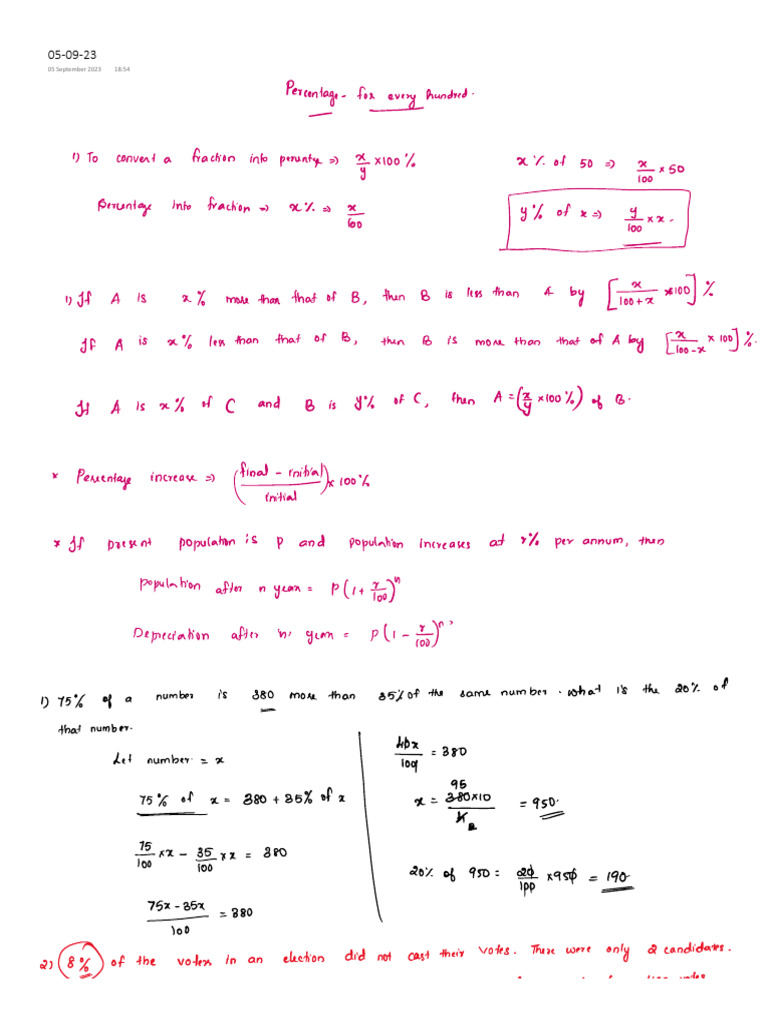 05-09-23
05 September 2023 18:54
Percentage - for every hundred.
1) To convert a fraction into percntge ⇒ x/y ×100 %
x % of 50 ⇒ x/100 × 50
Percentage into fraction → x % ⇒ x/100
y % of x ⇒ y/100 × x.
1) If A is x % more than that of B, then B is less than A by [x/(100+x) ×100] %
If A is x % less than that of B, then B is more than that of A by [x/(100-x) × 100] %.
If A is x % of C and B is y% of C, then A = (x/y ×100 %) of B.
* Percentage increase ⇒ ((final - initial)/initial) × 100 %
* If present population is P and population increases at r% per annum, then
population after n year = P(1 + r/100)^n
Depreciation after 'n' year = P(1 - r/100)^n
1) 75% of a number is 380 more than 35% of the same number. what is the 20% of
that number.
Let number = x
75 % of x = 380 + 35% of x
75/100 × x - 35/100 × x = 380
(75x - 35x)/100 = 380
40x/100 = 380
95
x = 380×10/4 = 950.
2
20% of 950 = 20/100 × 950 = 190.
2) 8% of the voters in an election did not cast their votes. There were only 2 candidates.